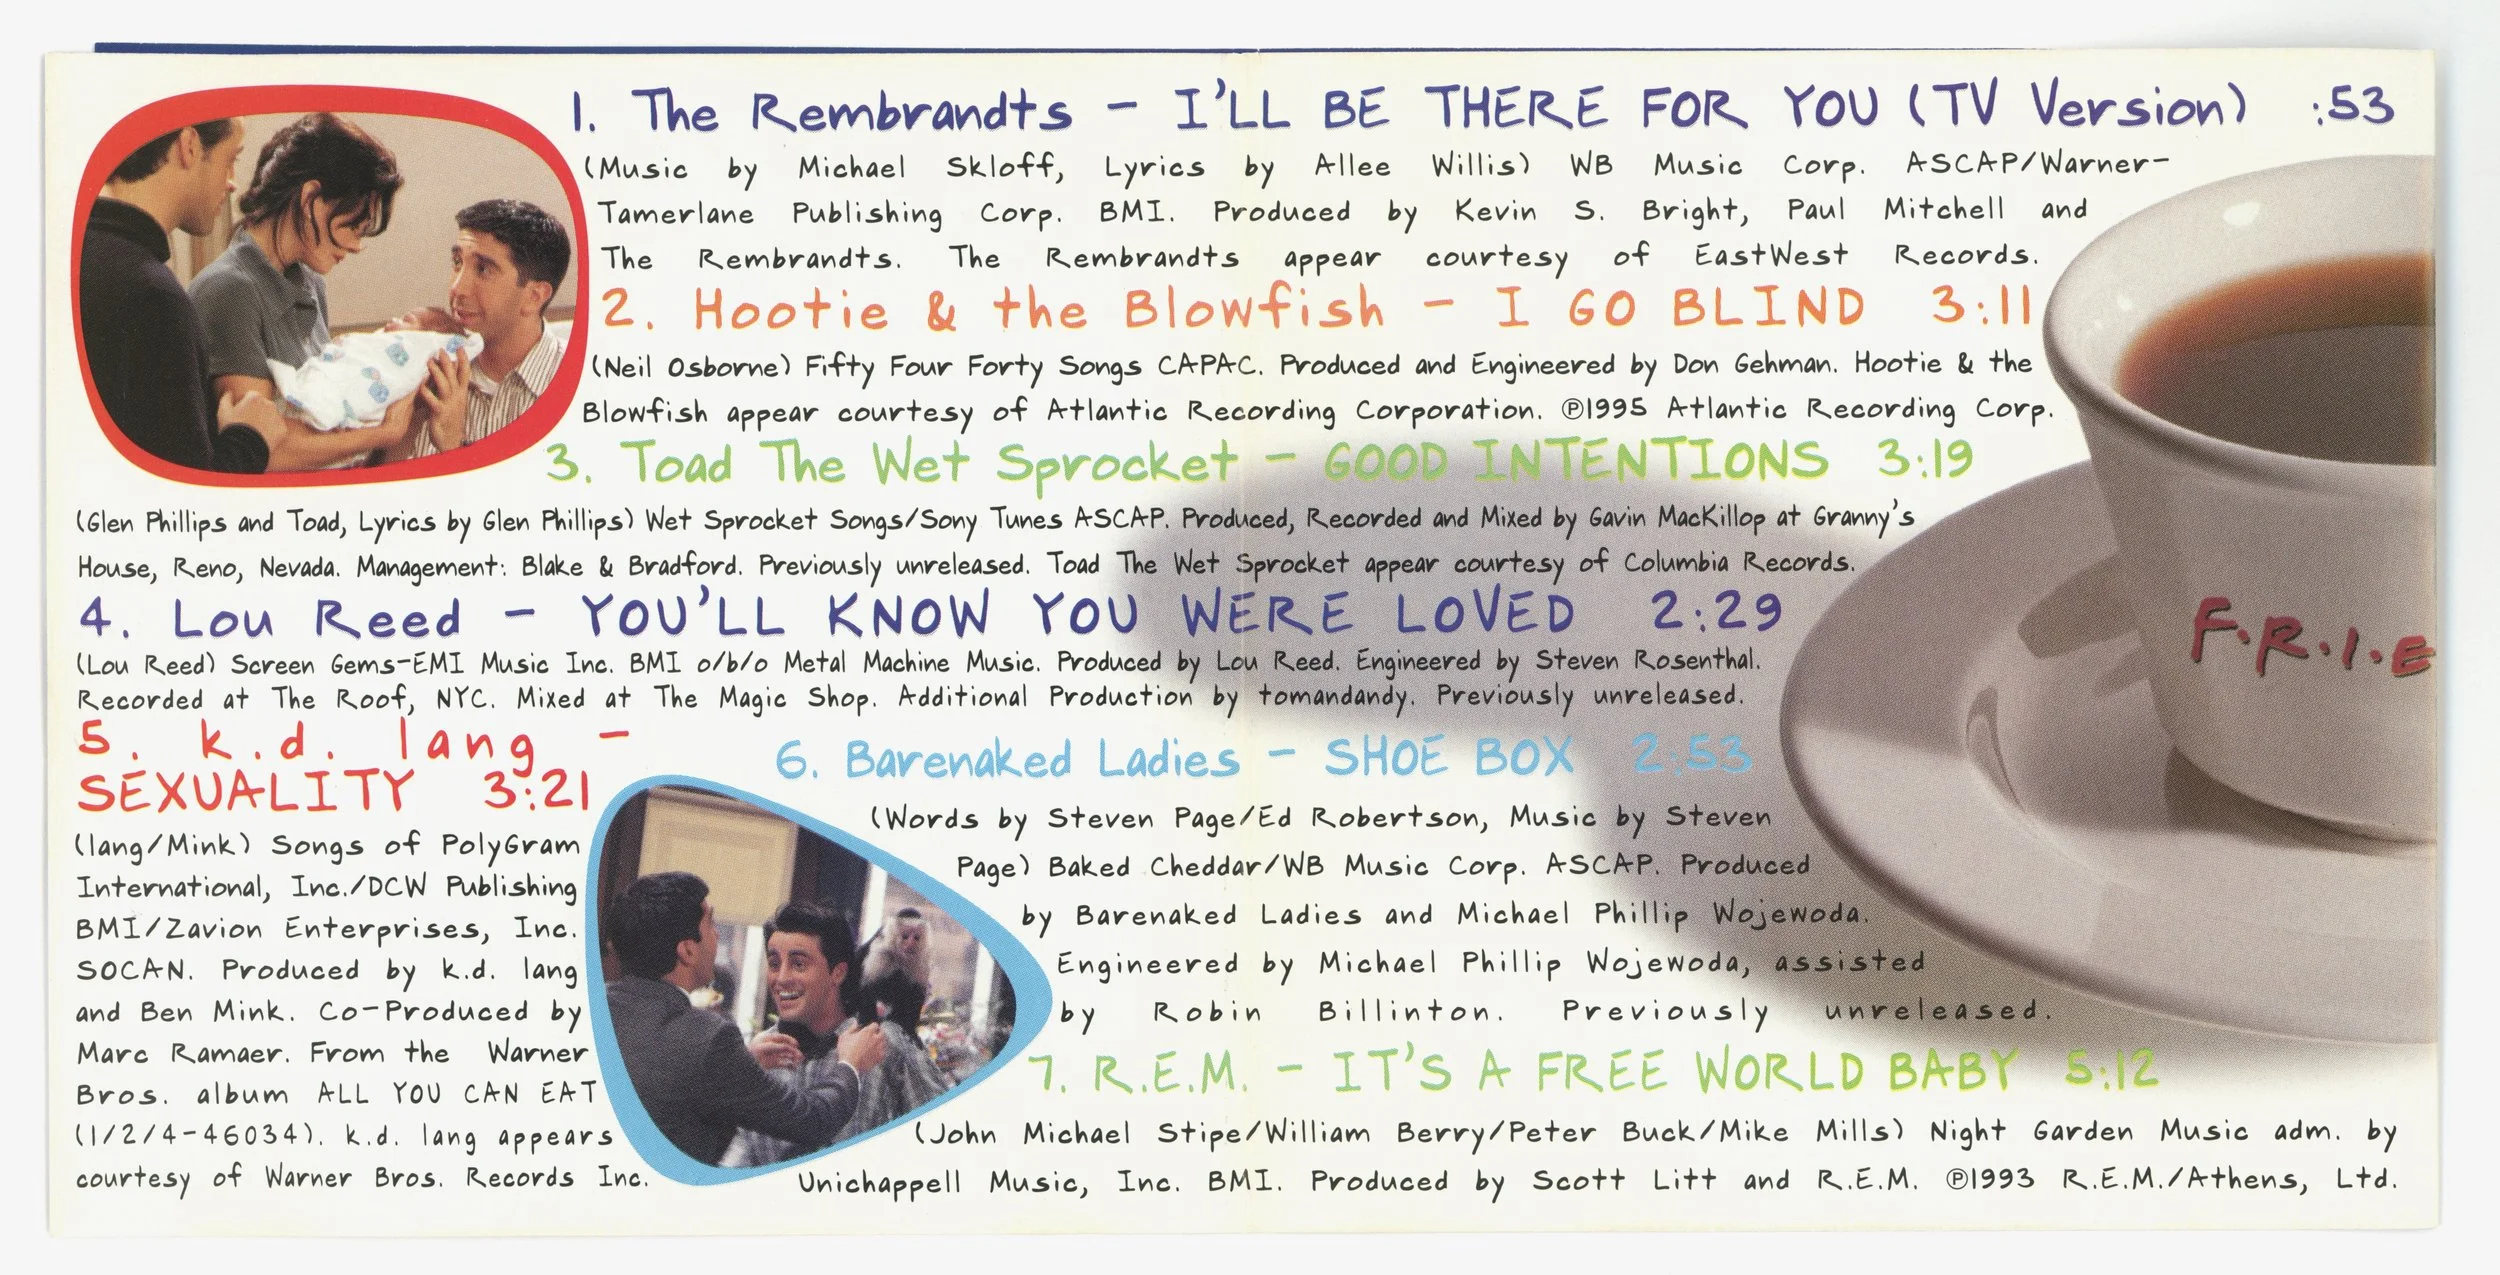 1. The Rembrandts - I'LL BE THERE FOR YOU (TV Version) :53
(Music by Michael Skloff, Lyrics by Allee Willis) WB Music Corp. ASCAP/Warner-
Tamerlane Publishing Corp. BMI. Produced by Kevin S. Bright, Paul Mitchell and
The Rembrandts. The Rembrandts appear courtesy of EastWest Records.
2. Hootie & the Blowfish - I GO BLIND 3:11
(Neil Osborne) Fifty Four Forty Songs CAPAC. Produced and Engineered by Don Gehman. Hootie & the
Blowfish appear courtesy of Atlantic Recording Corporation. ℗1995 Atlantic Recording Corp.
3. Toad The Wet Sprocket - GOOD INTENTIONS 3:19
(Glen Phillips and Toad, Lyrics by Glen Phillips) Wet Sprocket Songs/Sony Tunes ASCAP. Produced, Recorded and Mixed by Gavin MacKillop at Granny's
House, Reno, Nevada. Management: Blake & Bradford. Previously unreleased. Toad The Wet Sprocket appear courtesy of Columbia Records.
4. Lou Reed - YOU'LL KNOW YOU WERE LOVED 2:29
(Lou Reed) Screen Gems-EMI Music Inc. BMI o/b/o Metal Machine Music. Produced by Lou Reed. Engineered by Steven Rosenthal.
Recorded at The Roof, NYC. Mixed at The Magic Shop. Additional Production by tomandandy. Previously unreleased.
5. k.d. lang -
SEXUALITY 3:21
(lang/Mink) Songs of PolyGram
International, Inc./DCW Publishing
BMI/Zavion Enterprises, Inc.
SOCAN. Produced by k.d. lang
and Ben Mink. Co-Produced by
Marc Ramaer. From the Warner
Bros. album ALL YOU CAN EAT
(1/2/4-46034). k.d. lang appears
courtesy of Warner Bros. Records Inc.
6. Barenaked Ladies - SHOE BOX 2:53
(Words by Steven Page/Ed Robertson, Music by Steven
Page) Baked Cheddar/WB Music Corp. ASCAP. Produced
by Barenaked Ladies and Michael Phillip Wojewoda.
Engineered by Michael Phillip Wojewoda, assisted
by Robin Billinton. Previously unreleased.
7. R.E.M. - IT'S A FREE WORLD BABY 5:12
(John Michael Stipe/William Berry/Peter Buck/Mike Mills) Night Garden Music adm. by
Unichappell Music, Inc. BMI. Produced by Scott Litt and R.E.M. ℗1993 R.E.M./Athens, Ltd.
F.R.I.E